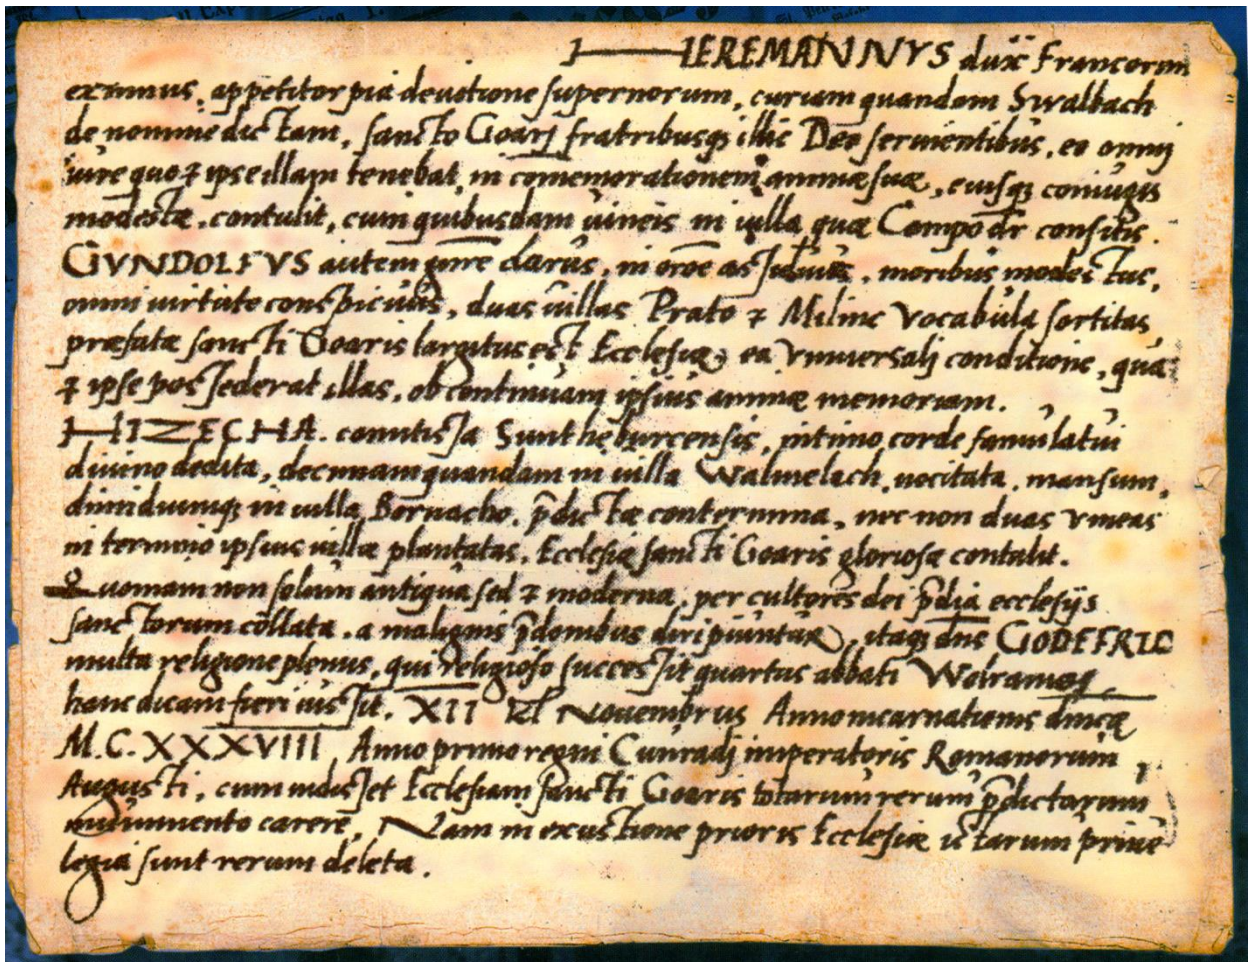 HEREMANNVS dux Francorum
eximius, appetitor pia devotione supernorum, curiam quandam Swalbach
de nomine dictam, sancto Goarj fratribusq; illic Deo servientibus, eo omnj
iure quo & ipse illam tenebat, in comemorationem animæ suæ, eiusq; coniugis
modestæ, contulit, cum quibusdam vineis in villa quæ Compo dr consitis.
GVNDOLFVS autem gñre clarus, in oroe assiduus, moribus modestus,
omni virtute conspicuus, duas villas Prato & Milinc Vocabula sortitas
præfatæ sancti Goaris largitus est Ecclesiæ, ea Vniversalj conditione, qua
& ipse possederat illas, ob continuam ipsius animæ memoriam.
HIZECHA. comitissa Sunthe burcensis, intimo corde famulatui
divino dedita, decimam quandam in villa Walmelach, vocitata, mansum,
dimidiumq; in villa Bornacho, p̄dictæ contermina, nec non duas vineas
in termino ipsius villæ plantatas, Ecclesiæ sancti Goaris gloriosæ contulit.
Quoniam non solum antiqua sed & moderna, per cultores dei p̄dia ecclesijs
sanctorum collata, a malignis p̄donibus diripiuntur, itaq; dn̄s GODEFRID
multa religione plenus, qui religioso successit quartus abbati Wolramo,
hanc dicam fieri iussit. XII kl Novembris Anno incarnationis dn̄icæ
M.C.XXXVIII Anno primo regni Cunradj imperatoris Romanorum
Augusti, cum vidisset Ecclesiam sancti Goaris totarum rerum p̄dictarum
munimento carere, Nam in exustione prioris Ecclesiæ istarum privi
legia sunt rerum deleta.